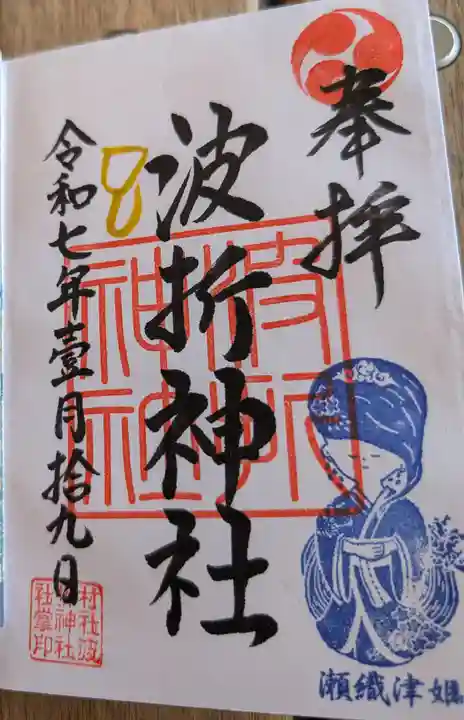 奉拝
波折神社
波折神社
令和七年壹月拾九日
村社波
折神社
社掌印
瀬織津姫